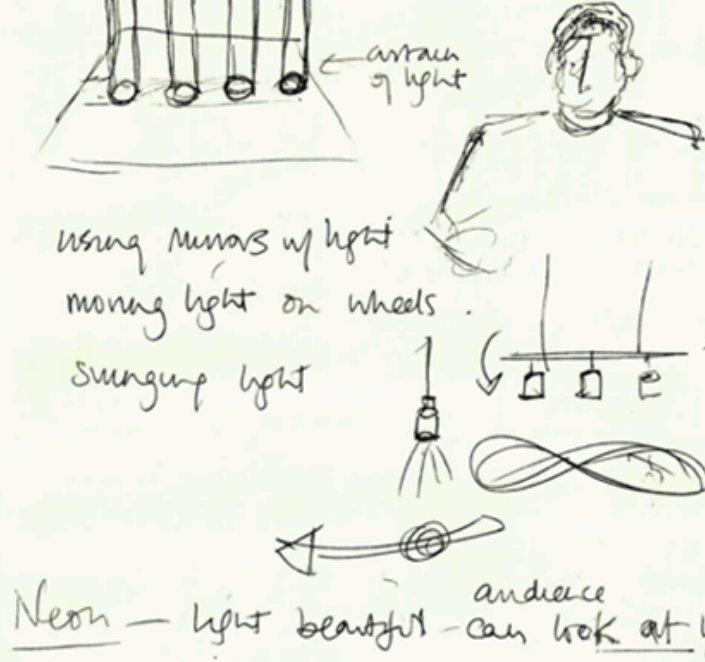 curtain
of light
using mirrors w/ light
moving light on wheels.
swinging light
audience
Neon — light beautiful - can look at